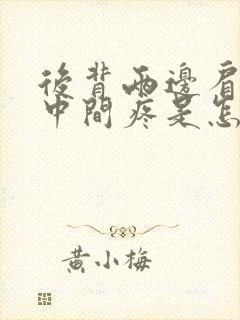 後背兩邊肩
中間疼是怎
黃小梅